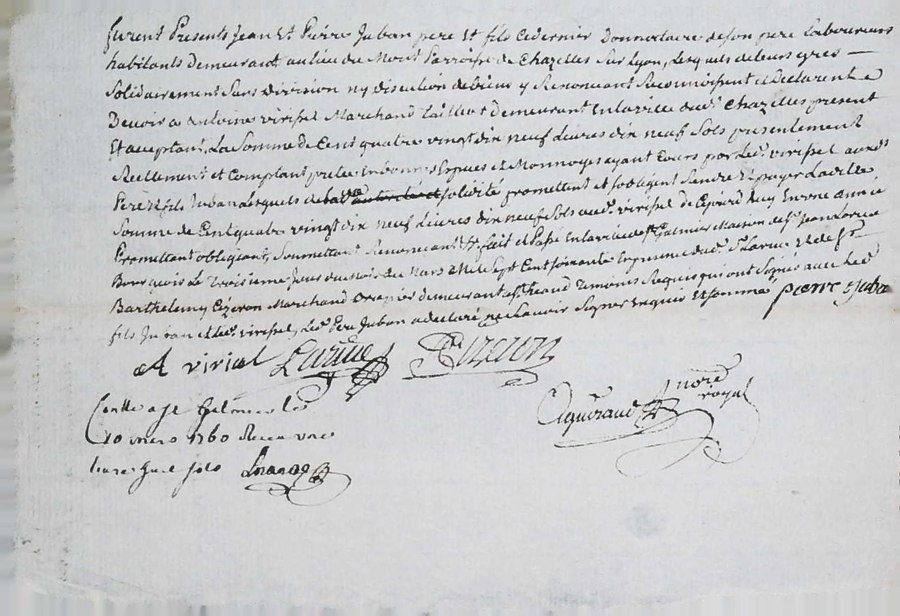 furent Presents Jean Et Pierre Juban pere Et fils Cedernier Donnataire deson pere Laboureurs
habitants Demeurant aulieu du Mont Parroisse de Chazelles Sur Lyon, Lesquels deleurs gres
Solidairement Sans Division ny discution debiens y Renoncant Reconnoissent et Declarent
Devoir a Antoine virissel Marchand Demeurant Enlaville dud. Chazelles present
Et acceptant, La Somme de Cent quatre vingt dix neuf Livres dix neuf Sols presentement
Reellement et Comptant Enbonnes Especes et Monnoyes ayant Cours par Led. virissel auxd.
Pere Et fils Juban Lesquels de solidité promettent et sobligent Rendre Et payer Laditte
Somme de Cent quatre vingt dix neuf Livres dix neuf Sols aud. virissel de Cejourdhuy En une année
Promettant obligeant, Soumettant Renoncant &c. fait et Passé Enlaville de St. Galmier Maison de Sr. Jean
Bourgeois Le Troisieme Jour du Mois de Mars Mil Sept Cent soixante Enpresence dud. Sr. Larue Et de Sr.
Barthelemy Cizeron Marchand Drapier demeurant aud. St. Temoins Requis qui ont Signés avec Led.
fils Juban et Led. virissel, Led. Pere Juban a declaré ne Scavoir Signer Enquis Et Sommé pierre Juba
A virisel Larue Cizeron
Contlle a St Galmier Le
10 mars 1760 Recu
livres huit sols
nore
royal